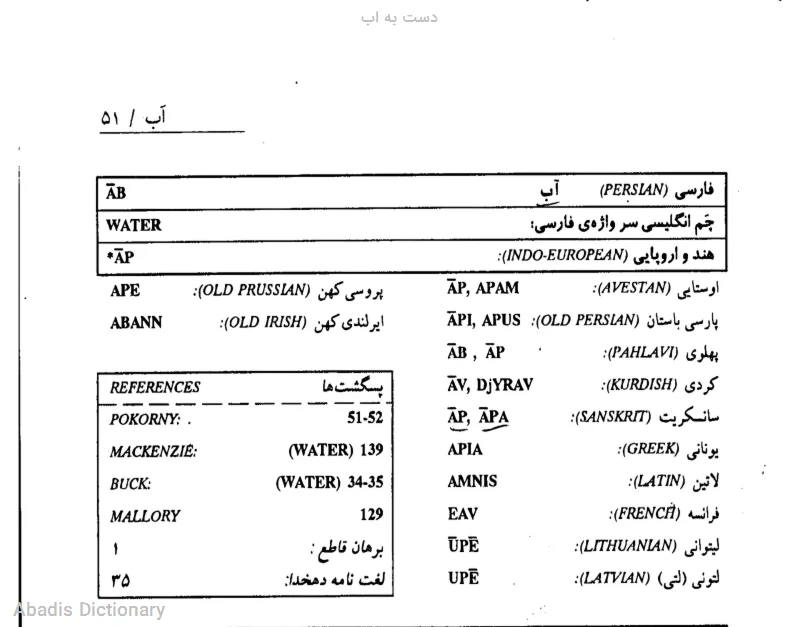 دست به اب
آب / ۵۱
فارسی (PERSIAN) آب ĀB
چَم انگلیسی سر واژه‌ی فارسی: WATER
هند و اروپایی (INDO-EUROPEAN): *ĀP
اوستایی (AVESTAN): ĀP, APAM
پارسی باستان (OLD PERSIAN): ĀPI, APUS
پهلوی (PAHLAVI): ĀB , ĀP
کردی (KURDISH): ĀV, DjYRAV
سانسکریت (SANSKRIT): ĀP, ĀPA
یونانی (GREEK): APIA
لاتین (LATIN): AMNIS
فرانسه (FRENCH): EAV
لیتوانی (LITHUANIAN): ŪPĒ
لتونی (لتی) (LATVIAN): UPĒ
پروسی کهن (OLD PRUSSIAN): APE
ایرلندی کهن (OLD IRISH): ABANN
REFERENCES پسگشت‌ها
POKORNY: . 51-52
MACKENZIE: (WATER) 139
BUCK: (WATER) 34-35
MALLORY 129
برهان قاطع : ۱
لغت نامه دهخدا: ۳۵
Abadis Dictionary